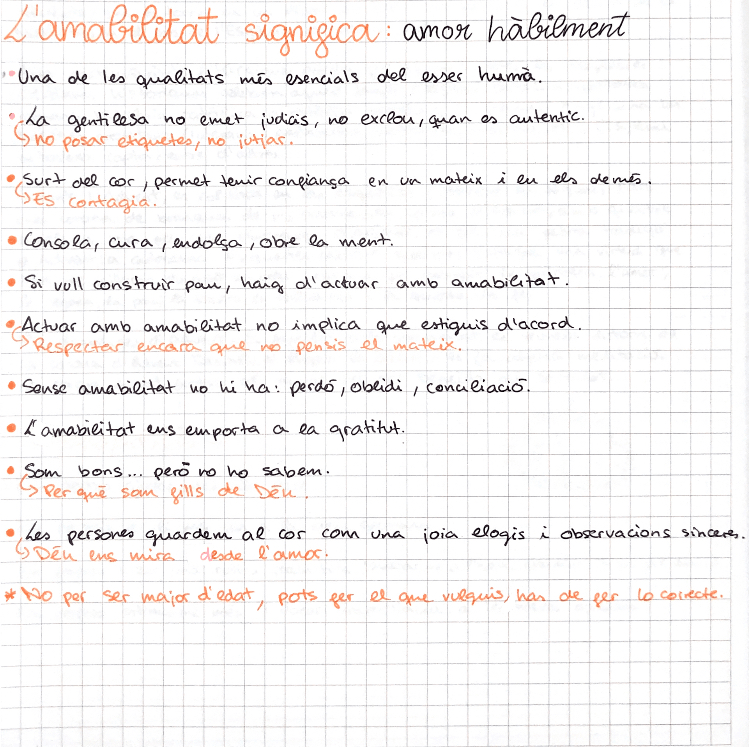 L'amabilitat significa: amor hàbilment
• Una de les qualitats més esencials del esser humà.
• La gentilesa no emet judicis, no exclou, quan es autèntic.
↳ no posar etiquetes, no jutjar.
• Surt del cor, permet tenir confiança en un mateix i en els demés.
↳ ES contagia.
• Consola, cura, endolça, obre la ment.
• Si vull construir pau, haig d'actuar amb amabilitat.
• Actuar amb amabilitat no implica que estiguis d'acord.
↳ Respectar encara que no pensis el mateix.
• Sense amabilitat no hi ha: perdó, oblidi, conciliació.
• L'amabilitat ens emporta a la gratitut.
• Som bons... però no ho sabem.
↳ Per què som fills de Déu.
• Les persones guardem al cor com una joia elogis i observacions sinceres.
↳ Déu ens mira desde l'amor.
* No per ser major d'edat, pots fer el que vulguis, has de fer lo correcte.